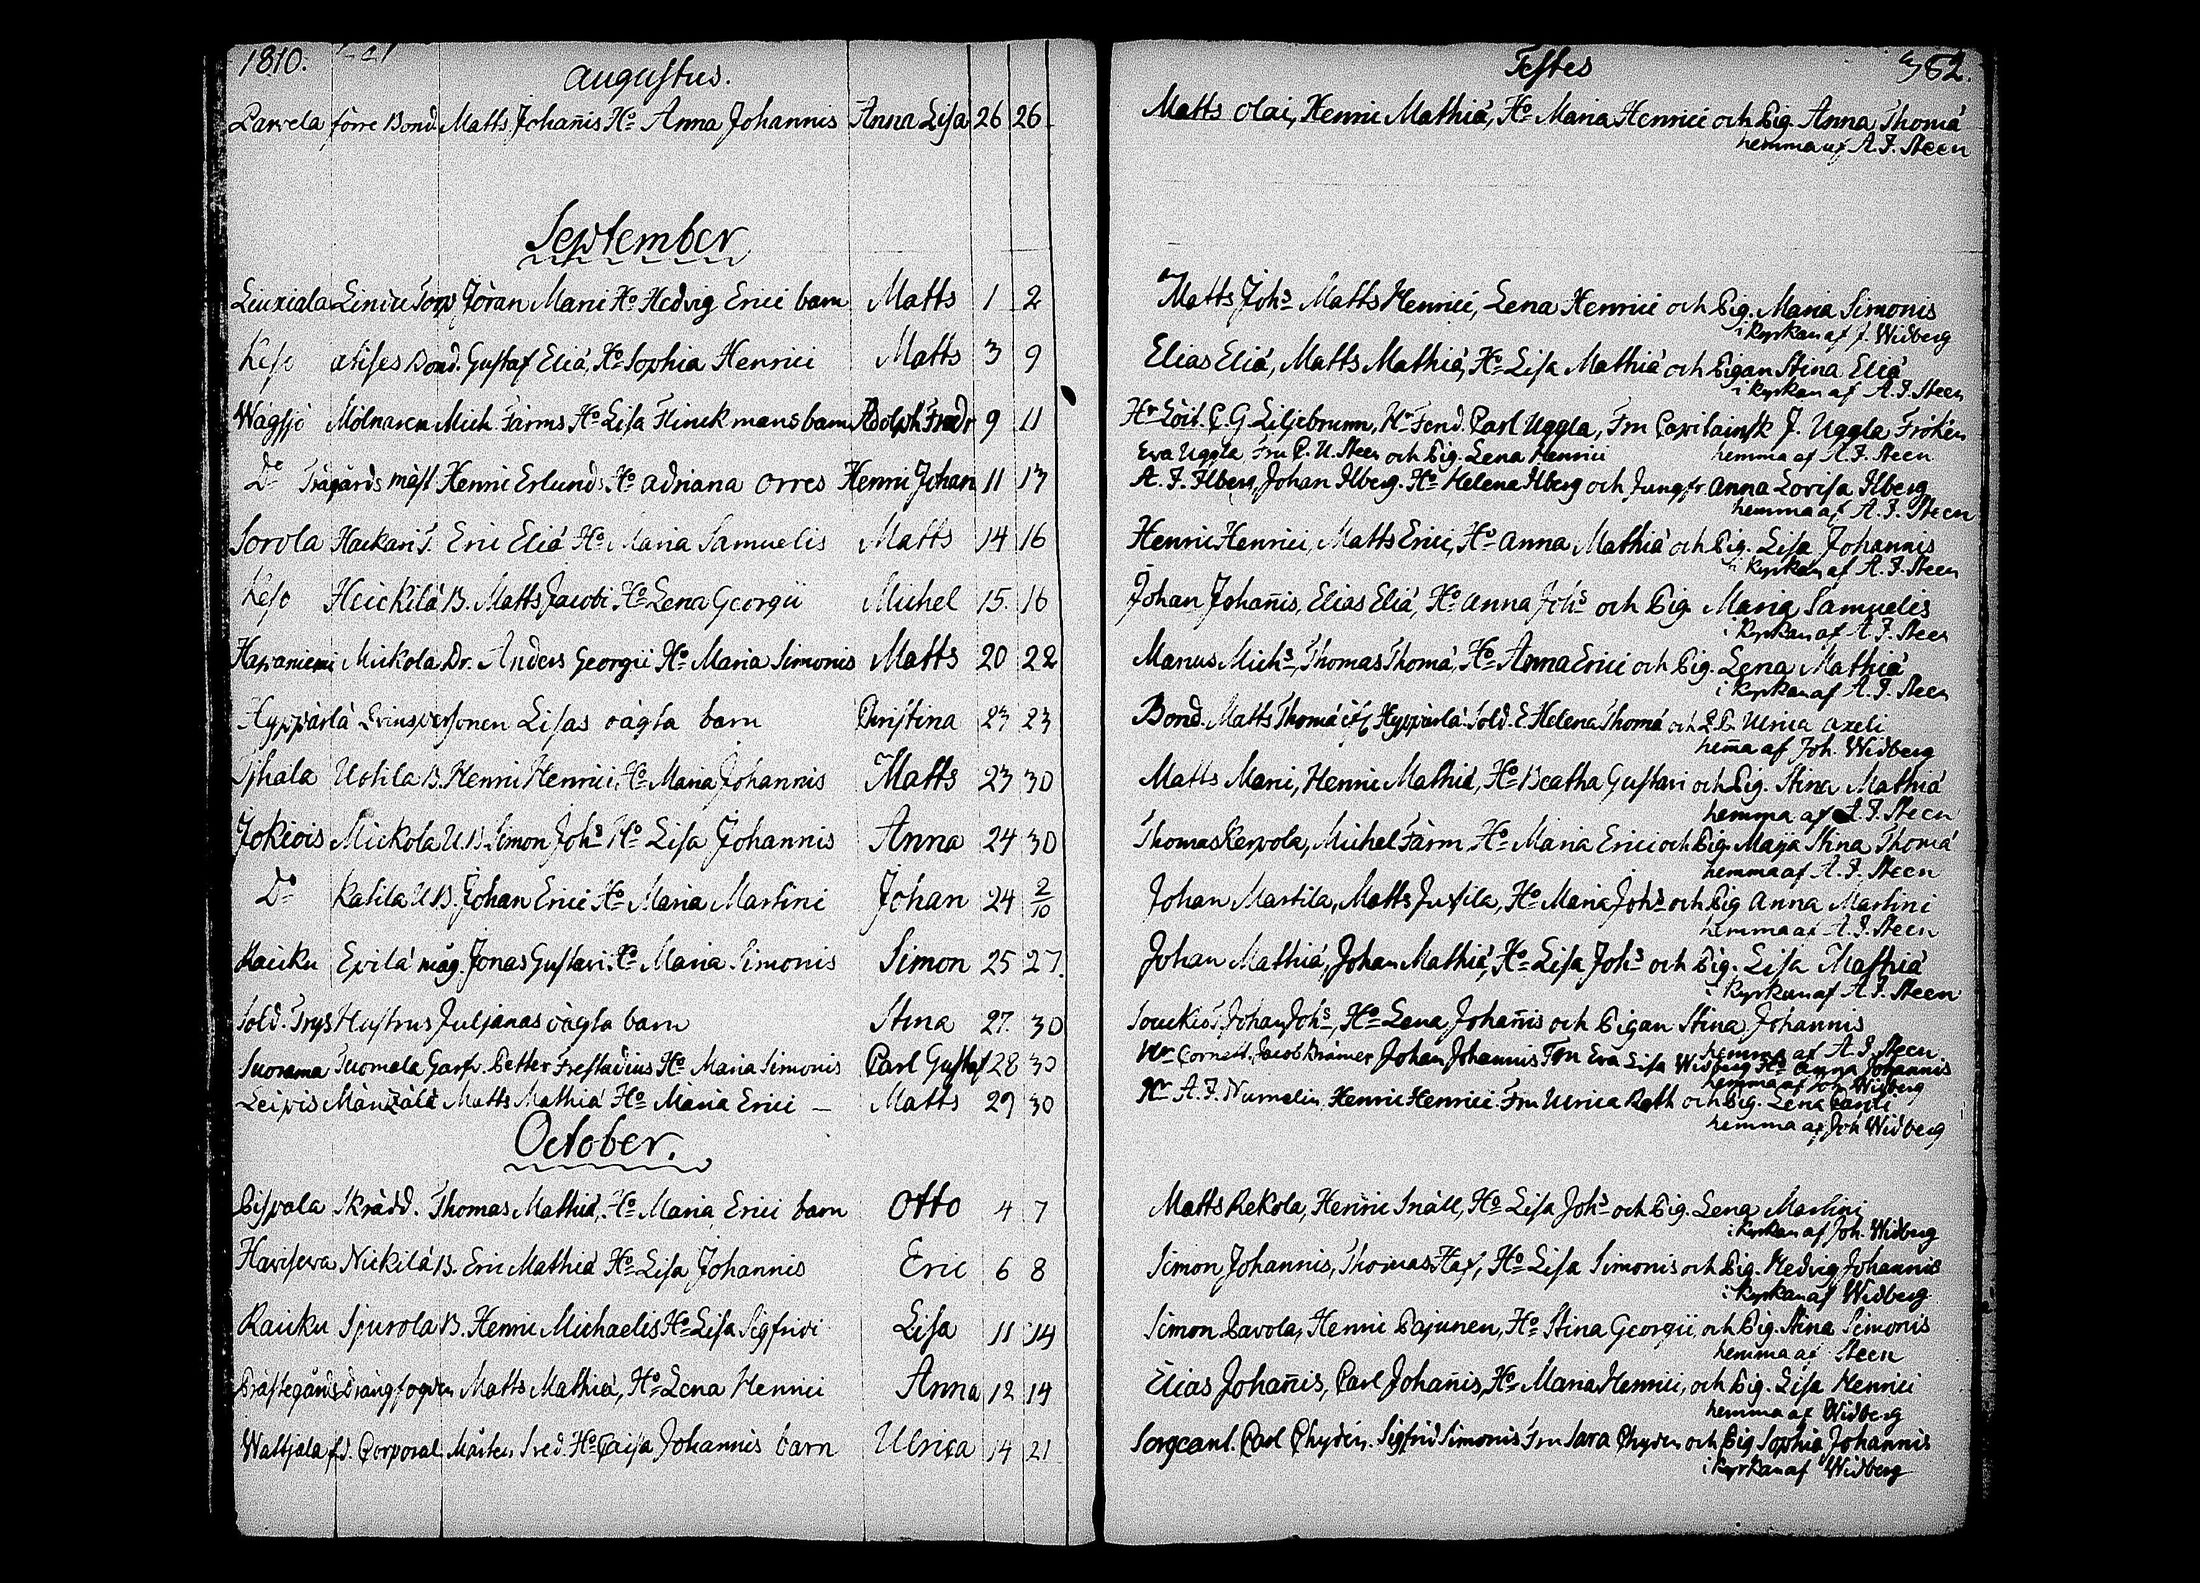 1810.
Augustus.
Parvela förre Bond. Matts Johañis Ho Anna Johannis Anna Lisa 26 26
September
Liuxiala Torp Jöran Marci Ho Hedvig Erici barn Matts 1 2
Keso Bond. Gustaf Eliä, Ho Sophia Henrici Matts 3 9
Wågsjö Mölnaren Mich. Färms Ho Lisa Flinckmans barn Adolph Fredr 9 11
Do Trägårds mäst Henric Erlunds Ho Adriana Orres Henric Johan 11 13
Sorola Haikari T. Eric Eliä Ho Maria Samuelis Matts 14 16
Keso Heickilä B. Matts Jacobi Ho Lena Georgii Michel 15. 16
Hapaniemi Mickola Dr. Anders Georgii Ho Maria Simonis Matts 20 22
Hyppärlä Qvinspersonen Lisas oägta barn Christina 23 23
Sjhala Uotila B. Henric Henrici Ho Maria Johannis Matts 23 30
Jokiois Mickola U.B. Simon Johs Ho Lisa Johannis Anna 24 30
Do Katila U.B. Johan Erici Ho Maria Martini Johan 24 2/10
Raiku Epilä måg. Jonas Gustavi Ho Maria Simonis Simon 25 27.
Sold. Trygs Hustrus Juljanas oägta barn Stina 27. 30
Suorama Tuomela Garfv. Petter Frestadius Ho Maria Simonis Carl Gustaf 28 30
Leipis Matts Mathiä Ho Maria Erici – Matts 29 30
October.
Pispala Skrädd. Thomas Mathiä, Ho Maria Erici barn Otto 4 7
Haviseva Nickilä B. Eric Mathiä Ho Lisa Johannis Eric 6 8
Raiku Sipurola B. Henric Michaelis Ho Lisa Sigfridi Lisa 11 14
Prästegårds Drängfogden Matts Mathiä, Ho Lena Henrici Anna 12 14
Waltjala f.d. Corporal Mårten Ho Caisa Johannis barn Ulrica 14 21
Testes 362.
Matts Olai, Henric Mathiä, Ho Maria Henrici och Pig. Anna Thomä
hemma af A. F. Steen
Matts Johs Matts Henrici, Lena Henrici och Pig. Maria Simonis
i kyrkan af J. Widberg
Elias Eliä, Matts Mathiä, Ho Lisa Mathiä och Pigan Stina Eliä
i kyrkan af A. F. Steen
Hr Löit. C. G. Liljebrunn, Hr Fend. Carl Uggla, Fru Capitainsk J. Uggla Fröken
Eva Uggla Fru C. U. Steen och Pig. Lena Henrici hemma af A. F. Steen
A. F. Ilberg, Johan Ilberg. Ho Helena Ilberg och Jungfr. Anna Lovisa Ilberg
hemma af A. F. Steen
Henric Henrici, Matts Erici, Ho Anna Mathiä och Pig. Lisa Johannis
i kyrkan af A. F. Steen
Johan Johañis, Elias Eliä, Ho Anna Johs och Pig. Maria Samuelis
i kyrkan af A. F. Steen
Marcus Michs, Thomas Thomä, Ho Anna Erici och Pig. Lena Mathiä
i kyrkan af A. F. Steen
Bond. Matts Thomä Hyppärlä. Sold. E Helena Thomä och Ulrica Axeli
hem̃a af Joh. Widberg
Matts Marci, Henric Mathiä, Ho Beatha Gustavi och Pig. Stina Mathiä
hemma af A. F. Steen
Thomas Kerpola, Michel Färm, Ho Maria Erici och Pig. Maija Stina Thomä
hemma af A. F. Steen
Johan Martila, Matts Jussila, Ho Maria Johs och Pig Anna Martini
hemma af A. F. Steen
Johan Mathiä, Johan Mathiä, Ho Lisa Johs och Pig. Lisa Mathiä
i kyrkan af A. F. Steen
Johan Johs, Ho Lena Johañis och Pigan Stina Johannis
hemma af A. F. Steen
Hr Cornett. Jacob Brämer Johan Johannis Fru Eva Lisa Widberg Ho Anna Johannis
hemma af Joh. Widberg
Hr A. F. Numelin, Henric Henrici Fru Ulrica Roth och Pig. Lena Caroli
hemma af Joh Widberg
Matts Rekola, Henric Snäll, Ho Lisa Johs och Pig. Lena Martini
i kyrkan af Joh. Widberg
Simon Johannis, Thomas Haf, Ho Lisa Simonis och Pig. Hedvig Johannis
i kyrkan af Widberg
Simon Pavola, Henric Pajunen, Ho Stina Georgii och Pig. Stina Simonis
hemma af Steen
Elias Johañis, Carl Johañis, Ho Maria Henrici, och Pig. Lisa Henrici
hemma af Widberg
Sergeant. Carl Chydén. Sigfrid Simonis Fru Sara Chydén och Pig Sophia Johannis
i kyrkan af Widberg